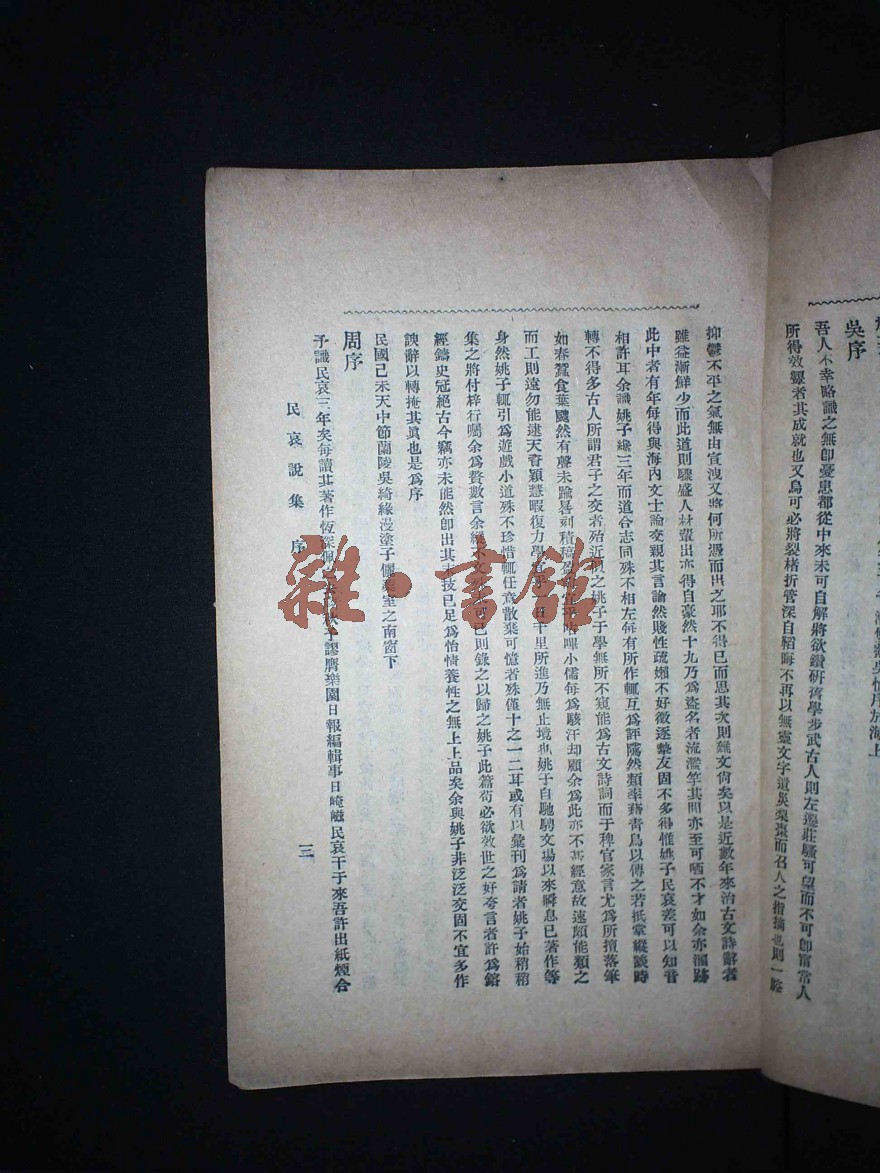 吳序
吾人不幸略識之無卽憂患都從中來未可自解將欲鑽研舊學步武古人則左遷莊騷可望而不可卽甯常人
所得效顰者其成就也又烏可必將裂楮折管深自韜晦不再以無靈文字遺災梨棗而召人之指摘也則一
抑鬱不平之氣無由宣洩又將何所憑而出之耶不得已而思其次則雜文尙矣以是近數年來治古文詩辭者
雖益漸鮮少而此道則驟盛人材輩出亦得自豪然十九乃爲盜名者流濫竽其間亦至可哂不才如余亦溷跡
此中者有年每得與海內文士論交親其言論然賤性疏嬾不好徵逐摯友固不多得惟姚子民哀差可以知音
相許耳余識姚子纔三年而道合志同殊不相左每有所作輒互爲評隲然類率藉靑鳥以傳之若抵掌縱談時
轉不得多古人所謂君子之交者殆近似之姚子于學無所不窺能爲古文詩詞而于稗官家言尤爲所擅落筆
如春蠶食葉颼然有聲未踰晷刻積稿盈 小儒每爲駭汗却顧余爲此亦不甚經意故速頗能類之
而工則遠勿能逮天賚穎慧暇復力學 日千里所進乃無止境也姚子自馳騁文場以來瞬息已著作等
身然姚子輒引爲遊戲小道殊不珍惜輒任意散棄可憶者殊僅十之一二耳或有以彙刊爲請者姚子始稍稍
集之將付梓行囑余爲贅數言余 不文 可已則錄之以歸之姚子此篇苟必欲效世之好夸言者許爲鎔
經鑄史冠絕古今竊亦未能然卽出其 技已足爲怡情養性之無上上品矣余與姚子非泛泛交固不宜多作
諛辭以轉掩其眞也是爲序
民國己未天中節蘭陵吳綺緣漫塗于儷 室之南窗下
周序
予識民哀三年矣每讀其著作恆深佩 予謬膺樂園日報編輯事日崦嵫民哀干于來吾許出紙煙合
民哀說集 序 三